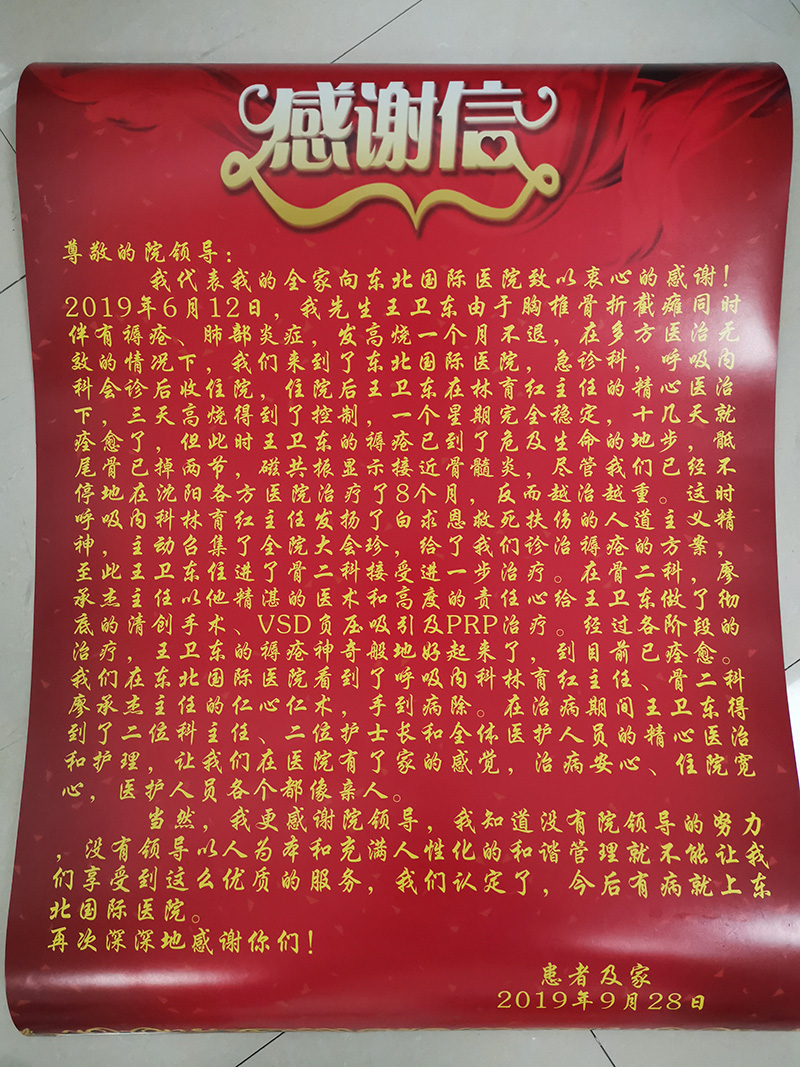 感谢信
尊敬的院领导：
我代表我的全家向东北国际医院致以衷心的感谢！
2019年6月12日，我先生王卫东由于胸椎骨折截瘫同时
伴有褥疮、肺部炎症，发高烧一个月不退，在多方医治无
效的情况下，我们来到了东北国际医院，急诊科，呼吸内
科会诊后收住院，住院后王卫东在林育红主任的精心医治
下，三天高烧得到了控制，一个星期完全稳定，十几天就
痊愈了，但此时王卫东的褥疮已到了危及生命的地步，骶
尾骨已掉两节，磁共振显示接近骨髓炎，尽管我们已经不
停地在沈阳各方医院治疗了8个月，反而越治越重。这时
呼吸内科林育红主任发扬了白求恩救死扶伤的人道主义精
神，主动召集了全院大会珍，给了我们诊治褥疮的方案，
至此王卫东住进了骨二科接受进一步治疗。在骨二科，廖
承杰主任以他精湛的医术和高度的责任心给王卫东做了彻
底的清创手术、VSD负压吸引及PRP治疗。经过各阶段的
治疗，王卫东的褥疮神奇般地好起来了，到目前已痊愈。
我们在东北国际医院看到了呼吸内科林育红主任、骨二科
廖承杰主任的仁心仁术，手到病除。在治病期间王卫东得
到了二位科主任、二位护士长和全体医护人员的精心医治
和护理，让我们在医院有了家的感觉，治病安心、住院宽
心，医护人员各个都像亲人。
当然，我更感谢院领导，我知道没有院领导的努力
，没有领导以人为本和充满人性化的和谐管理就不能让我
们享受到这么优质的服务，我们认定了，今后有病就上东
北国际医院。
再次深深地感谢你们！
患者及家
2019年9月28日